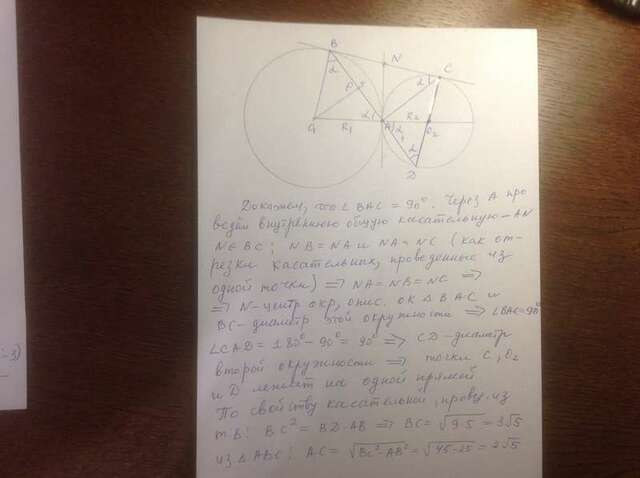 B
N
C
α
P
α
O₁
R₁
A
R₂
O₂
α
α
D
Докажем, что ∠BAC = 90°. Через A про
водем внутреннюю общую касательную – AN
N∈BC; NB = NA и NA = NC (как от-
резки касательных, проведенные из
одной точки) ⇒ NA = NB = NC ⇒
⇒ N - центр окр, опис. ок △BAC и
BC - диаметр этой окружности ⇒ ∠BAC=90°
∠CAD = 180° - 90° = 90° ⇒ CD - диаметр
второй окружности ⇒ точки C, O₂
и D лежат на одной прямой
По свойству касательной, провед. из
т B: BC² = BD·AB ⇒ BC = √9·5 = 3√5
из △ABC: AC = √BC²-AB² = √45-25 = 2√5